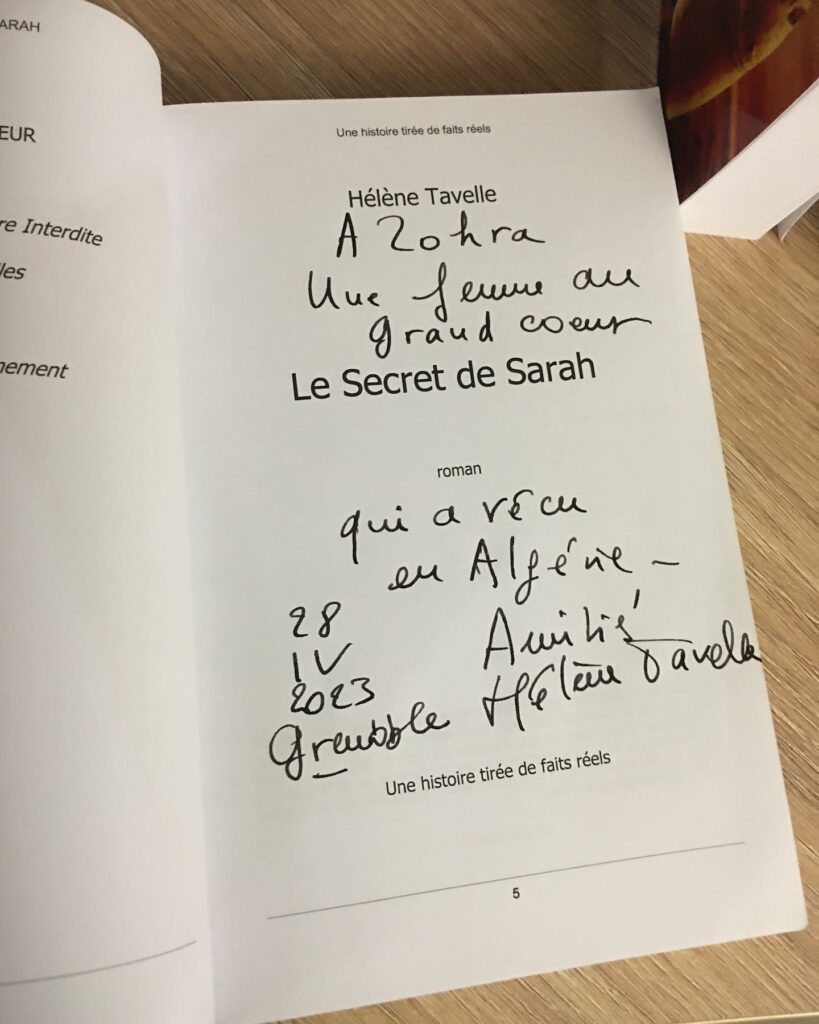 ARAH
EUR
re Interdite
les
nement
Une histoire tirée de faits réels
Hélène Tavelle
A Zohra
Une femme au
grand coeur
Le Secret de Sarah
roman
qui a vécu
en Algérie –
28
IV
2023
Amitié
Grenoble Hélène Tavelle
Une histoire tirée de faits réels
5